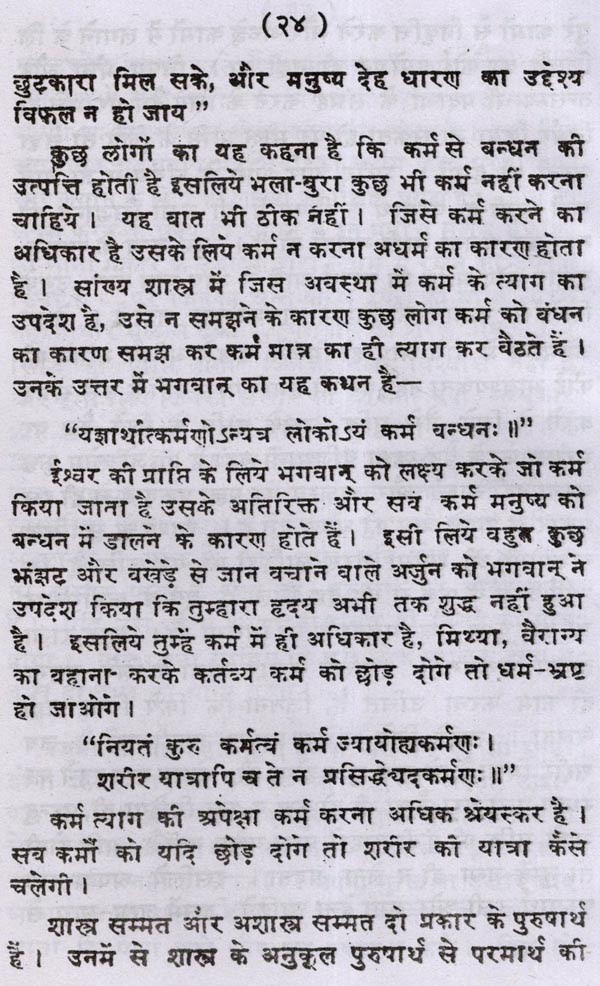 (२४)
छुटकारा मिल सके, और मनुष्य देह धारण का उद्देश्य
विफल न हो जाय”
कुछ लोगों का यह कहना है कि कर्म से बन्धन की
उत्पत्ति होती है इसलिये भला-बुरा कुछ भी कर्म नहीं करना
चाहिये। यह बात भी ठीक नहीं। जिसे कर्म करने का
अधिकार है उसके लिये कर्म न करना अधर्म का कारण होता
है। सांख्य शास्त्र में जिस अवस्था में कर्म के त्याग का
उपदेश है, उसे न समझने के कारण कुछ लोग कर्म को बंधन
का कारण समझ कर कर्म मात्र का ही त्याग कर बैठते हैं।
उनके उत्तर में भगवान् का यह कथन है—
“यज्ञार्थात्कर्मणोऽन्यत्र लोकोऽयं कर्म बन्धनः॥”
ईश्वर की प्राप्ति के लिये भगवान् को लक्ष्य करके जो कर्म
किया जाता है उसके अतिरिक्त और सब कर्म मनुष्य को
बन्धन में डालने के कारण होते हैं। इसी लिये बहुत कुछ
झंझट और बखेड़े से जान बचाने वाले अर्जुन को भगवान् ने
उपदेश किया कि तुम्हारा हृदय अभी तक शुद्ध नहीं हुआ
है। इसलिये तुम्हें कर्म में ही अधिकार है, मिथ्या, वैराग्य
का बहाना करके कर्तव्य कर्म को छोड़ दोगे तो धर्म-भ्रष्ट
हो जाओगे।
“नियतं कुरु कर्मत्वं कर्म ज्यायोह्यकर्मणः।
शरीर यात्रापि च ते न प्रसिद्धेयदकर्मणः॥”
कर्म त्याग की अपेक्षा कर्म करना अधिक श्रेयस्कर है।
सब कर्मों को यदि छोड़ दोगे तो शरीर की यात्रा कैसे
चलेगी।
शास्त्र सम्मत और अशास्त्र सम्मत दो प्रकार के पुरुषार्थ
हैं। उनमें से शास्त्र के अनुकूल पुरुषार्थ से परमार्थ की